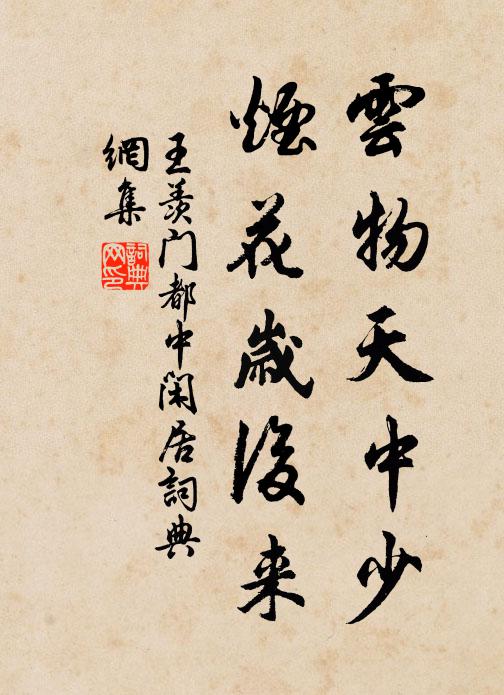 雲物天中少
煙花歲後来
王羨门都中閑居詞典
網集
詞典網印